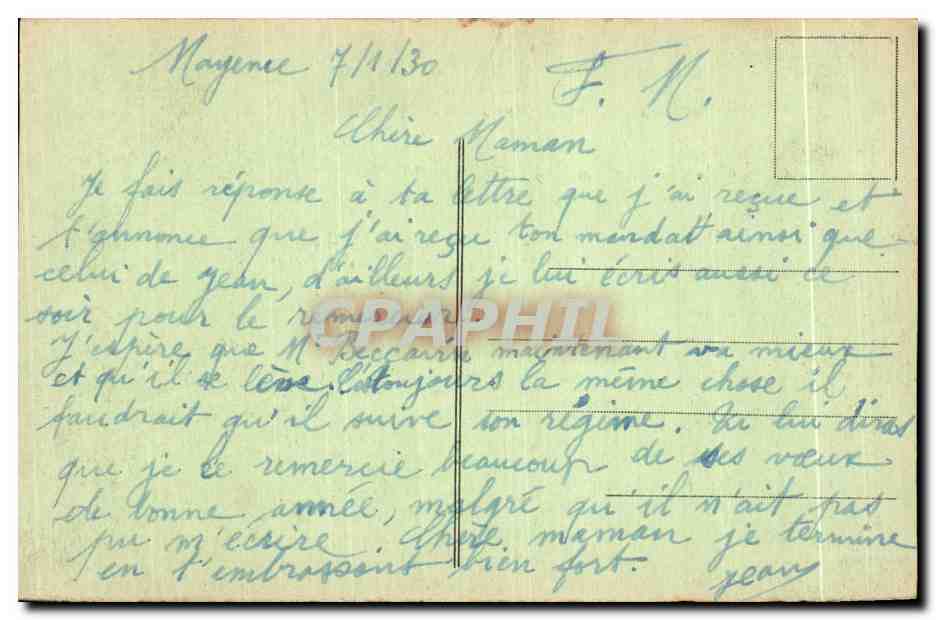 Mayence 7/1/30
F. M.
Chère Maman
Je fais réponse à ta lettre que j'ai reçue et
t'annonce que j'ai reçu ton mandat ainsi que
celui de Jean, d'ailleurs je lui écris aussi ce
soir pour le remercier.
CPAPHIL
J'espère que Mr maintenant va mieux
et qu'il se lève. C'est toujours la même chose il
faudrait qu'il suive son régime. Tu lui diras
que je le remercie beaucoup de ses vœux
de bonne année, malgré qu'il n'ait pas
pu m'écrire. Chère maman je termine
en t'embrassant bien fort. Jean